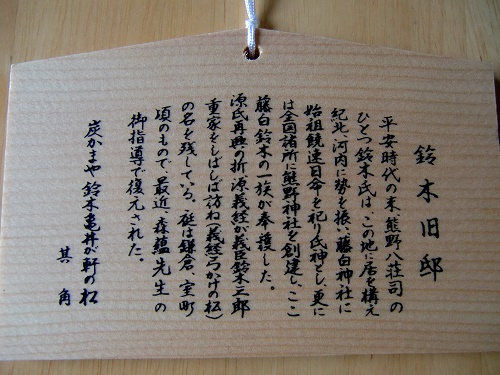 鈴木旧邸
平安時代の末、熊野八荘司の
ひとつ鈴木氏は、この地に居を構え
紀北、河内に勢を振い、藤白神社に
始祖饒速日命を祀り氏神とし、更に
は全国諸所に熊野神社を創建し、ここ
藤白鈴木の一族が奉護した。
源氏再興の折、源義経が義臣鈴木三郎
重家をしばしば訪ね(義経弓かけの松)
の名を残している。庭は鎌倉、室町
頃のもので、最近、森蘊先生の
御指導で復元された。
炭かまや 鈴木亀井が軒の松
其角